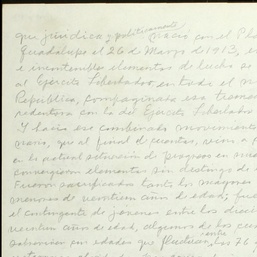 que jurídica y políticamente nació con el Pla
Guadalupe el 26 de Marzo de 1913, en
e incontables elementos de lucha se
al Ejército Libertador, en todo el
República, compaginada esa
redentora con la del Ejército Libertador
Y hacia ese combinado movimiento
nario, que al final de cuentas, vino a
en la actual situación de progreso en
convergieron elementos sin distingo de
Fueron sacrificados tanto los mayores
menores de veintiún años de edad; fue
el contingente de jóvenes entre los dieci
veintiún años de edad, algunos de los cua
sobreviven por edades que fluctúan entre los 76 y